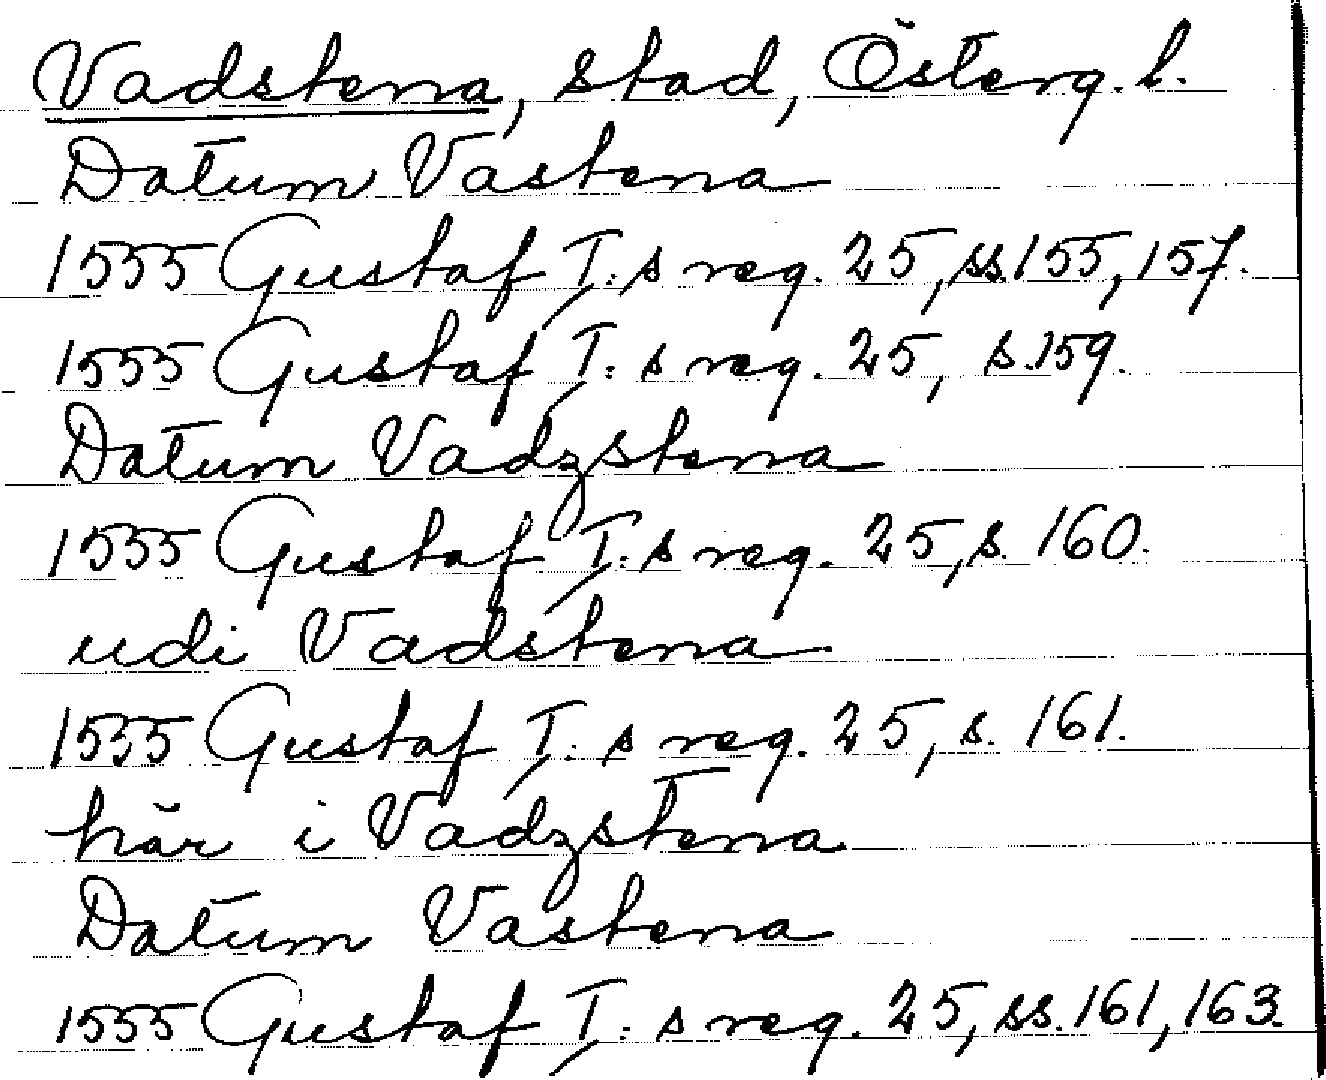 Vadstena, stad, Österg. l.
Datum Vastena
1555 Gustaf I: s reg. 25, ss. 155, 157.
1555 Gustaf I: s reg. 25, s. 159.
Datum Vadzstena
1555 Gustaf I: s reg. 25, s. 160.
udi Vadstena
1555 Gustaf I: s reg. 25, s. 161.
här i Vadzstena
Datum Vastena
1555 Gustaf I: s reg. 25, ss. 161, 163.